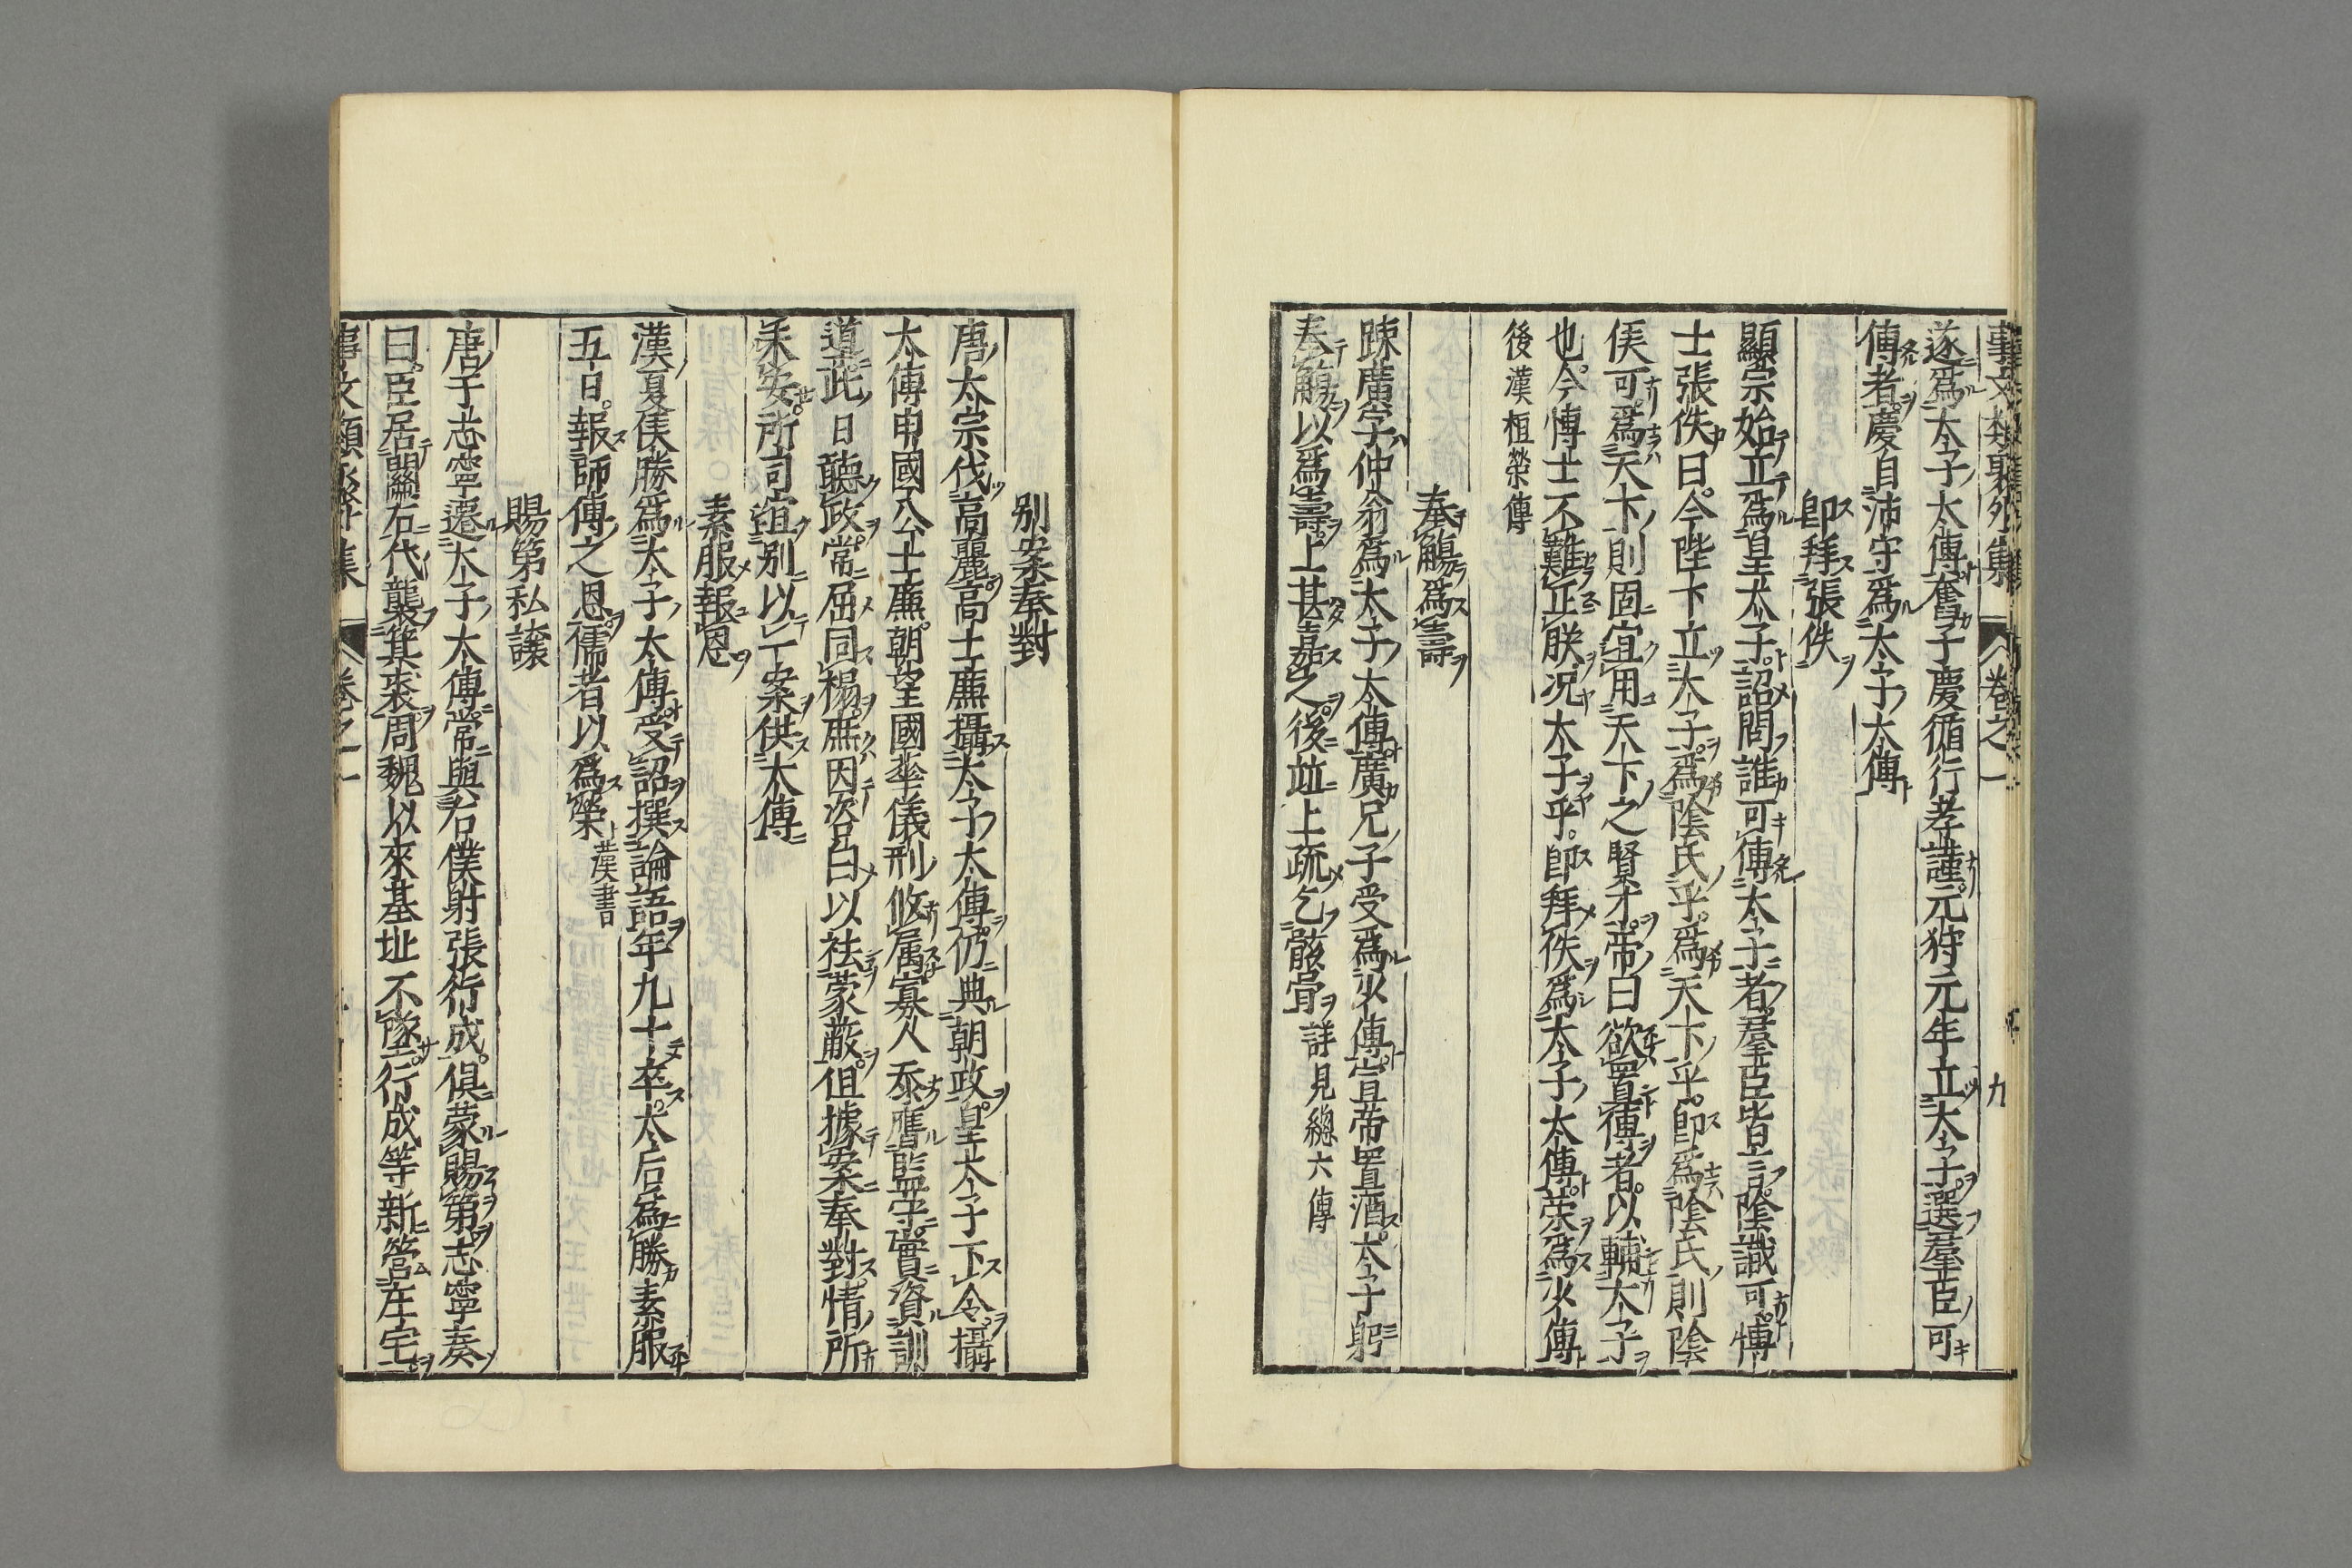 事文類聚外集 卷之一 九
遂爲太子太傅奮子慶循行孝謹元狩元年立太子選羣臣可
傅者慶自沛守爲太子太傅
即拜張佚
顯宗始立爲皇太子詔問誰可傅太子者羣臣皆言陰識可博
士張佚曰今陛下立太子爲陰氏乎爲天下乎即爲陰氏則陰
侯可爲天下則固宜用天下之賢才帝曰欲置傅者以輔太子
也今博士不難正朕况太子乎即拜佚爲太子太傅榮爲少傅
後漢桓榮傳
奉觴爲壽
踈廣字仲翁爲太子太傅廣兄子受爲少傅宣帝置酒太子躬
奉觴以爲壽上甚嘉之後並上疏乞骸骨詳見總六傅
别案奉對
唐太宗伐高麗高士廉攝太子太傅仍典朝政皇太子下令攝
太傅申國公士廉朝望國華儀刑攸属寡人忝膺監守實資訓
道此日聽政常屈同榻庶因諮白以袪蒙蔽但據案奉對情所
未安所司宜别以一案供太傅
素服報恩
漢夏侯勝爲太子太傅受詔撰論語年九十卒太后爲勝素服
五日報師傅之恩儒者以爲榮漢書
賜第私讓
唐于志寧遷太子太傅常與右僕射張行成俱蒙賜第志寧奏
曰臣居關右代襲箕裘周魏以來基址不墜行成等新營庄宅
事文類聚外集 卷之一